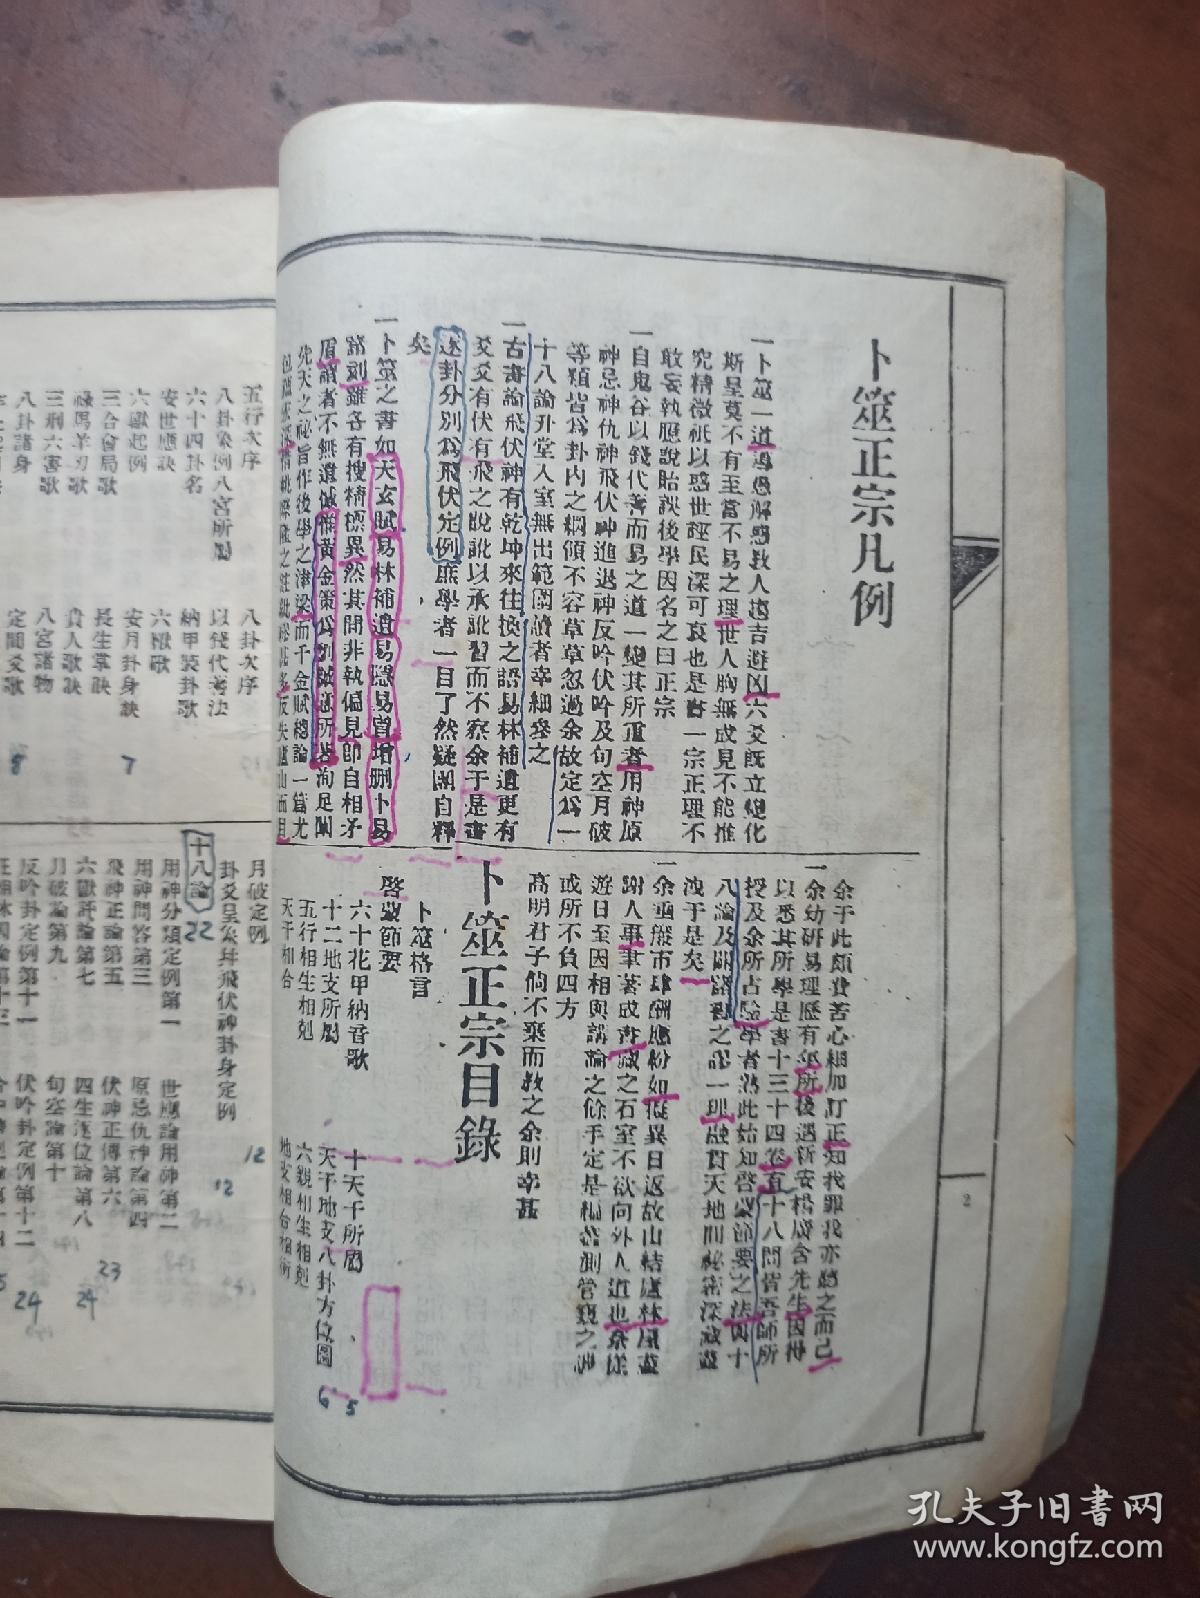 卜筮正宗凡例
一卜筮一道過愚解惑教人趨吉避凶六爻既立變化
斯呈莫不有至當不易之理世人胸無成見不能推
究精微祇以惑世誣民深可哀也是書一宗正理不
敢妄執臆說貽誤後學因名之曰正宗
一自鬼谷以錢代蓍而易之道一變其所重者用神原
神忌神仇神飛伏神進退神反吟伏吟及旬空月破
等類皆爲卦內之綱領不容草草忽過余故定爲一
十八論升堂入室無出範圍讀者幸細參之
一古書論飛伏神有乾坤來往換之語易林補遺更有
爻爻有伏有飛之說訛以承訛習而不察余于是書
逐卦分別爲飛伏定例庶學者一目了然疑團自釋
矣
一卜筮之書如天玄賦易林補遺易隱易冒增刪卜易
諸刻雖各有搜精標異然其間非執偏見即自相矛
盾讀者不無遺憾惟黃金策爲劉誠意所著洵足闡
先天之秘旨作後學之津梁而千金賦總論一篇尤
多反失廬山面目
余于此頗費苦心細加訂正知我罪我亦聽之而已
一余幼研易理歷有年所後遇新安楊廣含先生因得
以悉其所學是書十三十四卷有十八問皆吾師所
授及余所占驗學者熟此始知啓蒙節要之法與十
八論及闢諸書之謬一理融貫天地間秘密深藏盡
洩于是矣
一余垂簾市肆酬應紛如擬異日返故山結廬林風盡
謝人事聿著成書藏之石室不欲向外人道也奈樣
遊日至因相與講論之餘手定是稿蠡測管窺之誚
或所不負四方
高明君子倘不棄而教之余則幸甚
卜筮正宗目錄
卜筮格言
啓蒙節要
六十花甲納音歌
十天干所屬
十二地支所屬
天干地支八卦方位圖
五行相生相剋
六親相生相剋
天干相合
地支相合相衝
5
6
2
五行次序
八卦次序
八卦象例八宮所屬
以錢代蓍法
六十四卦名
納甲裝卦歌
安世應訣
六獸歌
六獸起例
安月卦身訣
7
三合會局歌
長生掌訣
祿馬羊刃歌
貴人歌訣
三刑六害歌
八宮諸物
八卦諸身
定間爻歌
8
月破定例
12
卦爻呈象幷飛伏神卦身定例
12
十八論
22
用神分類定例第一
世應論用神第二
用神問答第三
原忌仇神論第四
飛神正論第五
伏神正傳第六
23
六獸評論第七
四生逐位論第八
24
月破論第九
旬空論第十
反吟卦定例第十一
伏吟卦定例第十二
24
孔夫子旧書网
www.kongfz.com